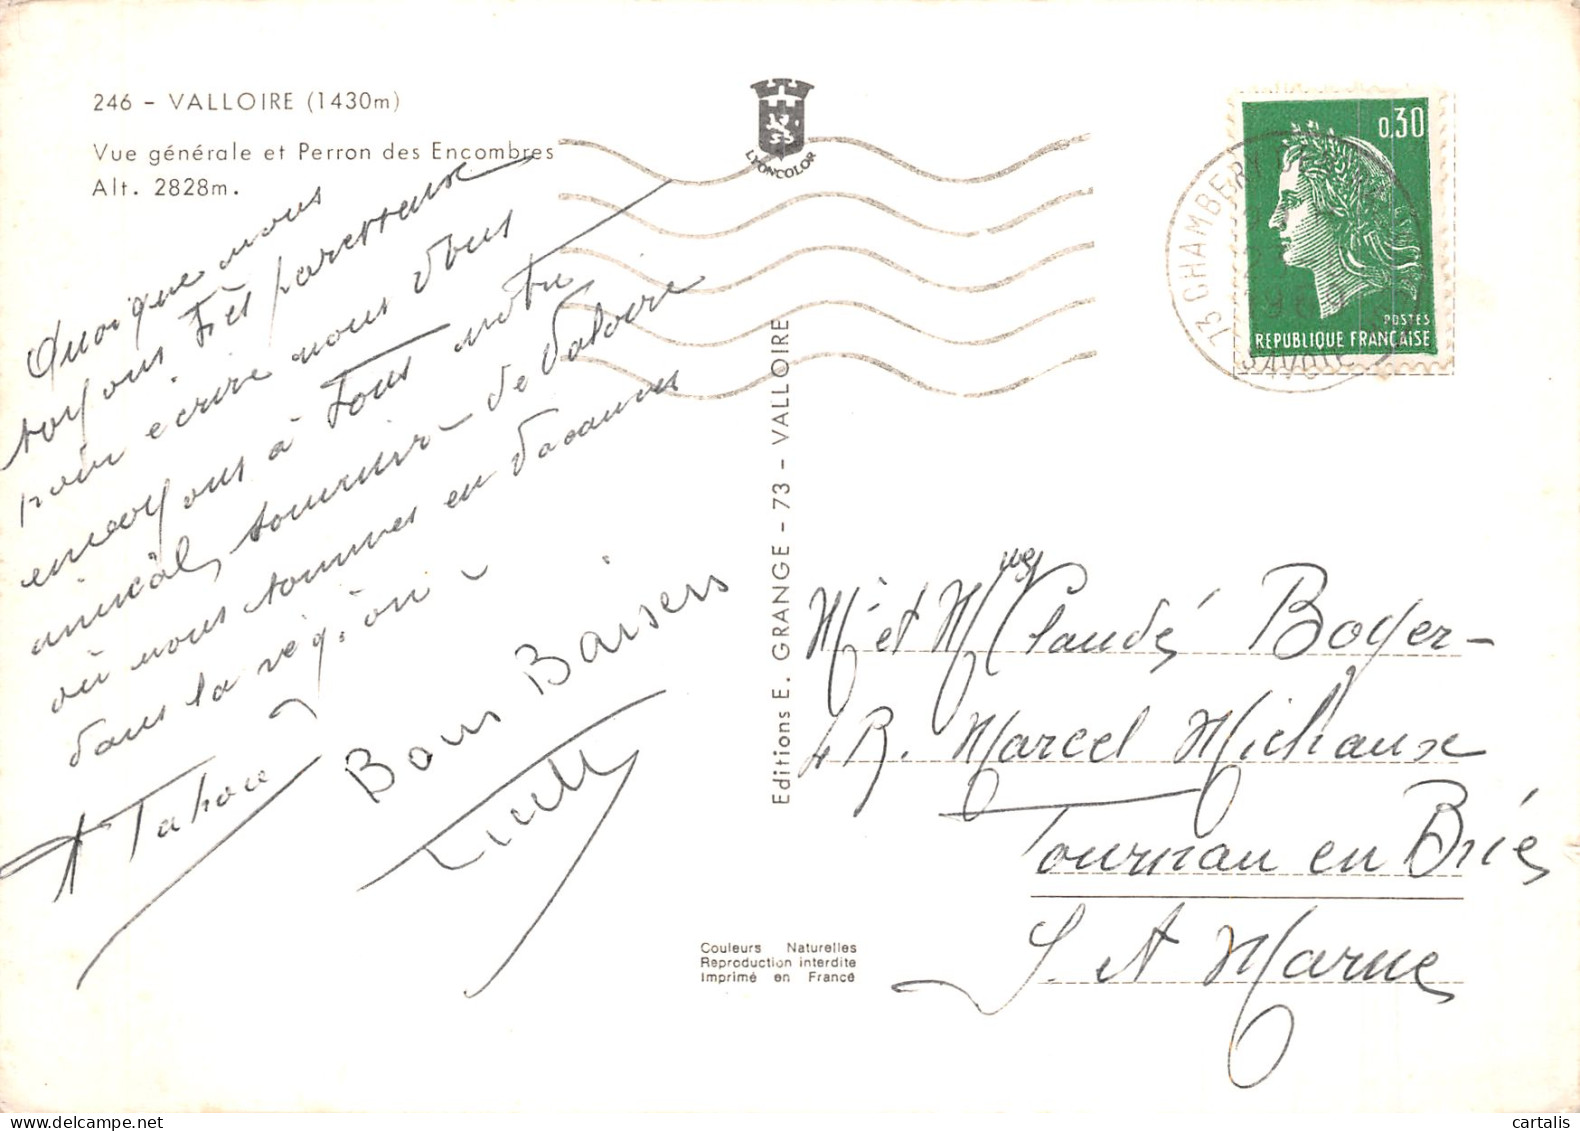 246 - VALLOIRE (1430m)
Vue générale et Perron des Encombres
Alt. 2828m.
LYONCOLOR
0,30
POSTES
REPUBLIQUE FRANÇAISE
73 CHAMBERY
SAVOIE
Quoique nous
soyons très paresseux
pour écrire nous vous
envoyons à Tous notre
amical souvenir - de Valoire
où nous sommes en vacances
dans la région -
Bons Baisers
Editions E. GRANGE - 73 - VALLOIRE
Mr et Mme Claude Boyer -
4 R. Marcel Michaux
Tournan en Brie
S. et Marne
Couleurs Naturelles
Reproduction interdite
Imprimé en France
cartalis